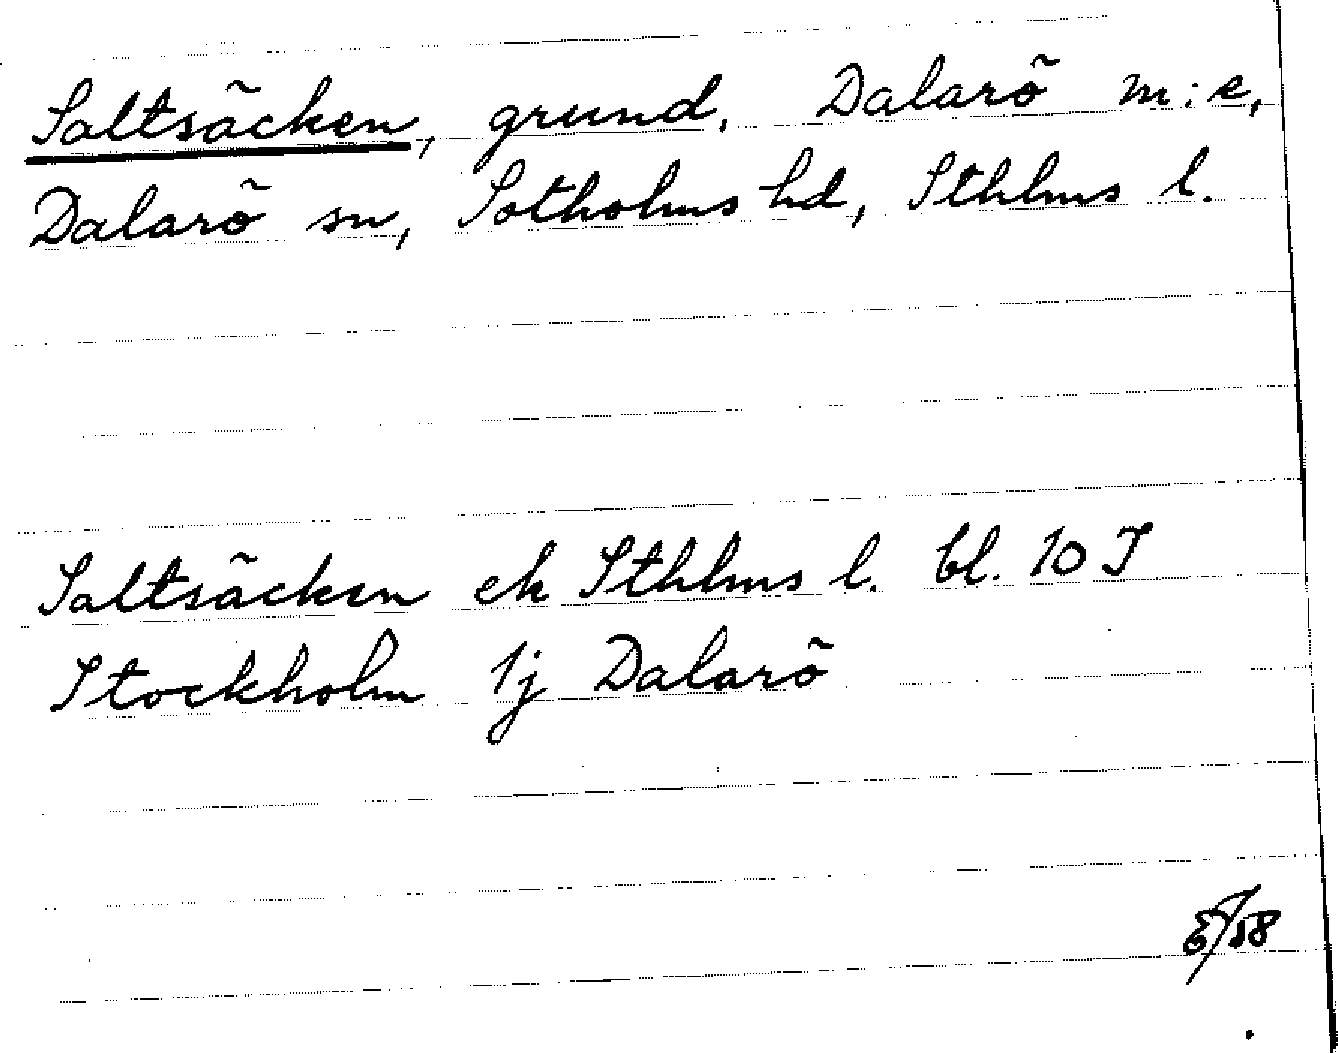 Saltsäcken, grund, Dalarö m:e,
Dalarö sn, Sotholms hd, Sthlms l.
Saltsäcken ek Sthlms l. bl. 10 J
Stockholm 1j Dalarö